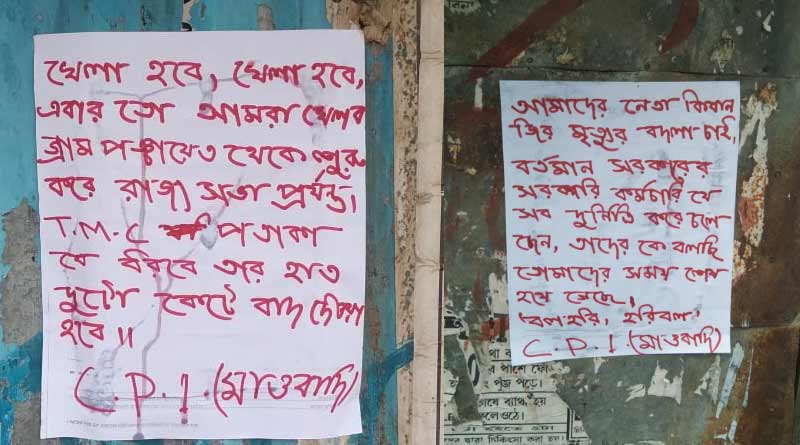 খেলা হবে, খেলা হবে,
এবার তো আমরা খেলব
গ্রাম পঞ্চায়েত থেকে শুরু
করে রাজ্য সভা প্রর্যন্ত।
T.M.C পতাকা
যে ধরবে তার হাত
দুটো কেটে বাদ দেওয়া
হবে॥
C.P.I. (মাওবাদি)
আমাদের নেতা কিষান
জির মৃত্যুর বদলা চাই,
বর্তমান সরকারের
সরকারি কর্মচারি যে
সব দুর্নিতি করে চলে
ছেন, তাদের কে বলছি
তোমাদের সময় শেষ
হয়ে গেছে,
'বল হরি, হরিবল'
C.P.I (মাওবাদি)
থা ব
র পাশে ফো
পুঁজ পড়ে।
ব্যাথা হয়